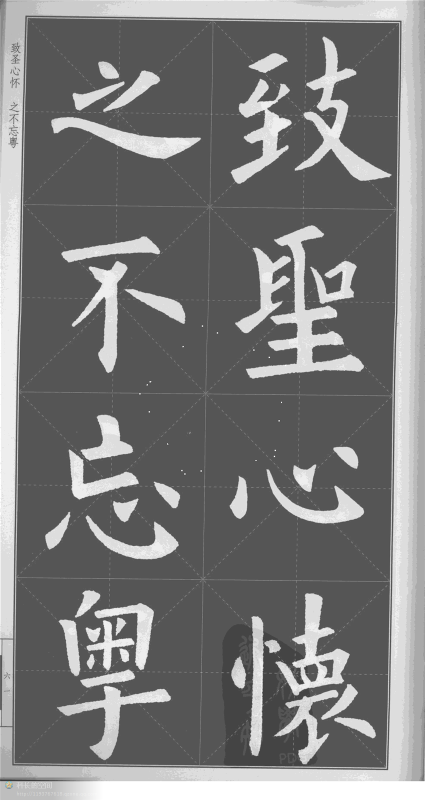 致聖心懷
之不忘粤
致圣心怀 之不忘粤
六一